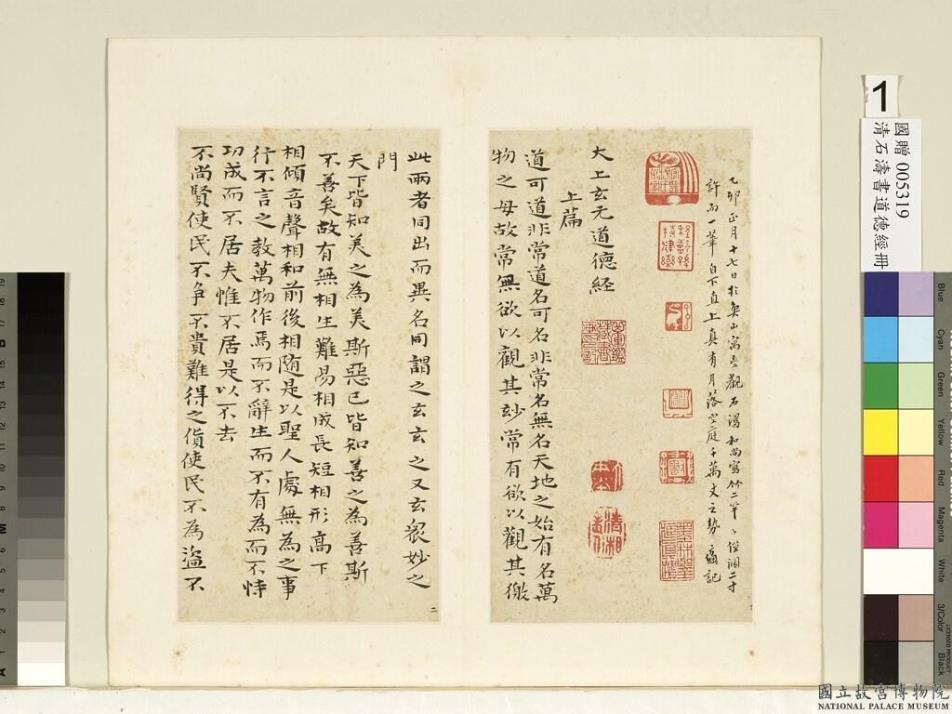 乙卯正月十七日於奐山寓壹觀石濤和尚寫竹二竿竿徑濶二寸
許而一筆自下直上真有月落空庭千萬丈之勢
大上玄元道德經
上篇
道可道非常道名可名非常名無名天地之始有名萬
物之母故常無欲以觀其玅常有欲以觀其徼
此兩者同出而異名同謂之玄玄之又玄衆妙之
門
天下皆知美之為美斯惡已皆知善之為善斯
不善矣故有無相生難易相成長短相形高下
相傾音聲相和前後相随是以聖人處無為之事
行不言之教萬物作焉而不辭生而不有為而不恃
功成而不居夫惟不居是以不去
不尚賢使民不争不貴難得之貨使民不為盜不
二
1
國贈 005319
清石濤書道德經冊
Blue
Cyan
Green
Yellow
Red
Magenta
White
3/Color
Black
國立故宮博物院
NATIONAL PALACE MUSEUM